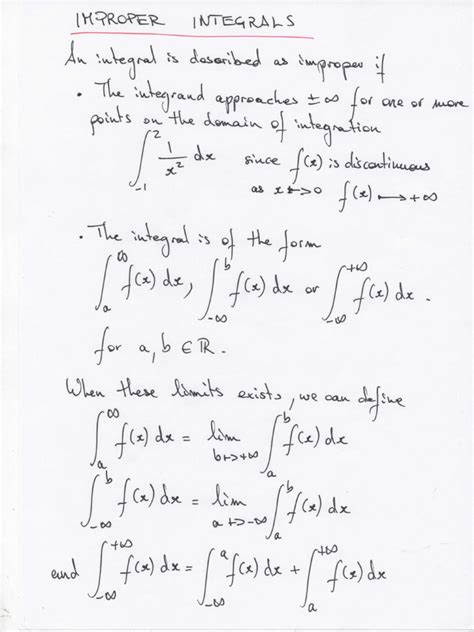 IMPROPER INTEGRALS
An integral is described as improper if
• The integrand approaches ±∞ for one or more
points on the domain of integration
∫_{-1}^{2} 1/x² dx since f(x) is discontinuous
as x ↦> 0 f(x) ⟼ +∞
• The integral is of the form
∫_{a}^{∞} f(x) dx, ∫_{-∞}^{b} f(x) dx or ∫_{-∞}^{+∞} f(x) dx.
for a, b ∈ ℝ.
When these limits exists, we can define
∫_{a}^{∞} f(x) dx = lim_{b↦+∞} ∫_{a}^{b} f(x) dx
∫_{-∞}^{b} f(x) dx = lim_{a↦-∞} ∫_{a}^{b} f(x) dx
and ∫_{-∞}^{+∞} f(x) dx = ∫_{-∞}^{a} f(x) dx + ∫_{a}^{+∞} f(x) dx